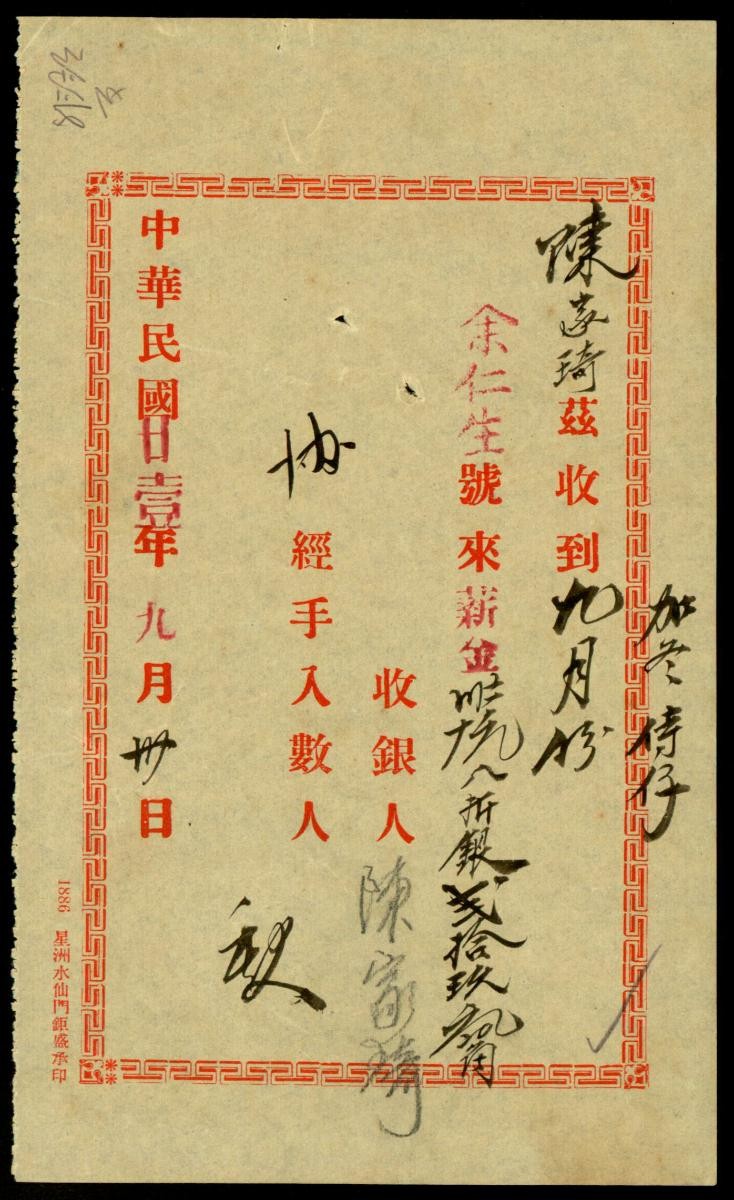 加冬侍仔
陳家琦茲收到九月份
余仁生號來薪金 八折銀弍拾玖
收銀人陳家琦
協經手入數人
中華民國廿壹年九月卅日
1886 星洲水仙門鉅盛承印